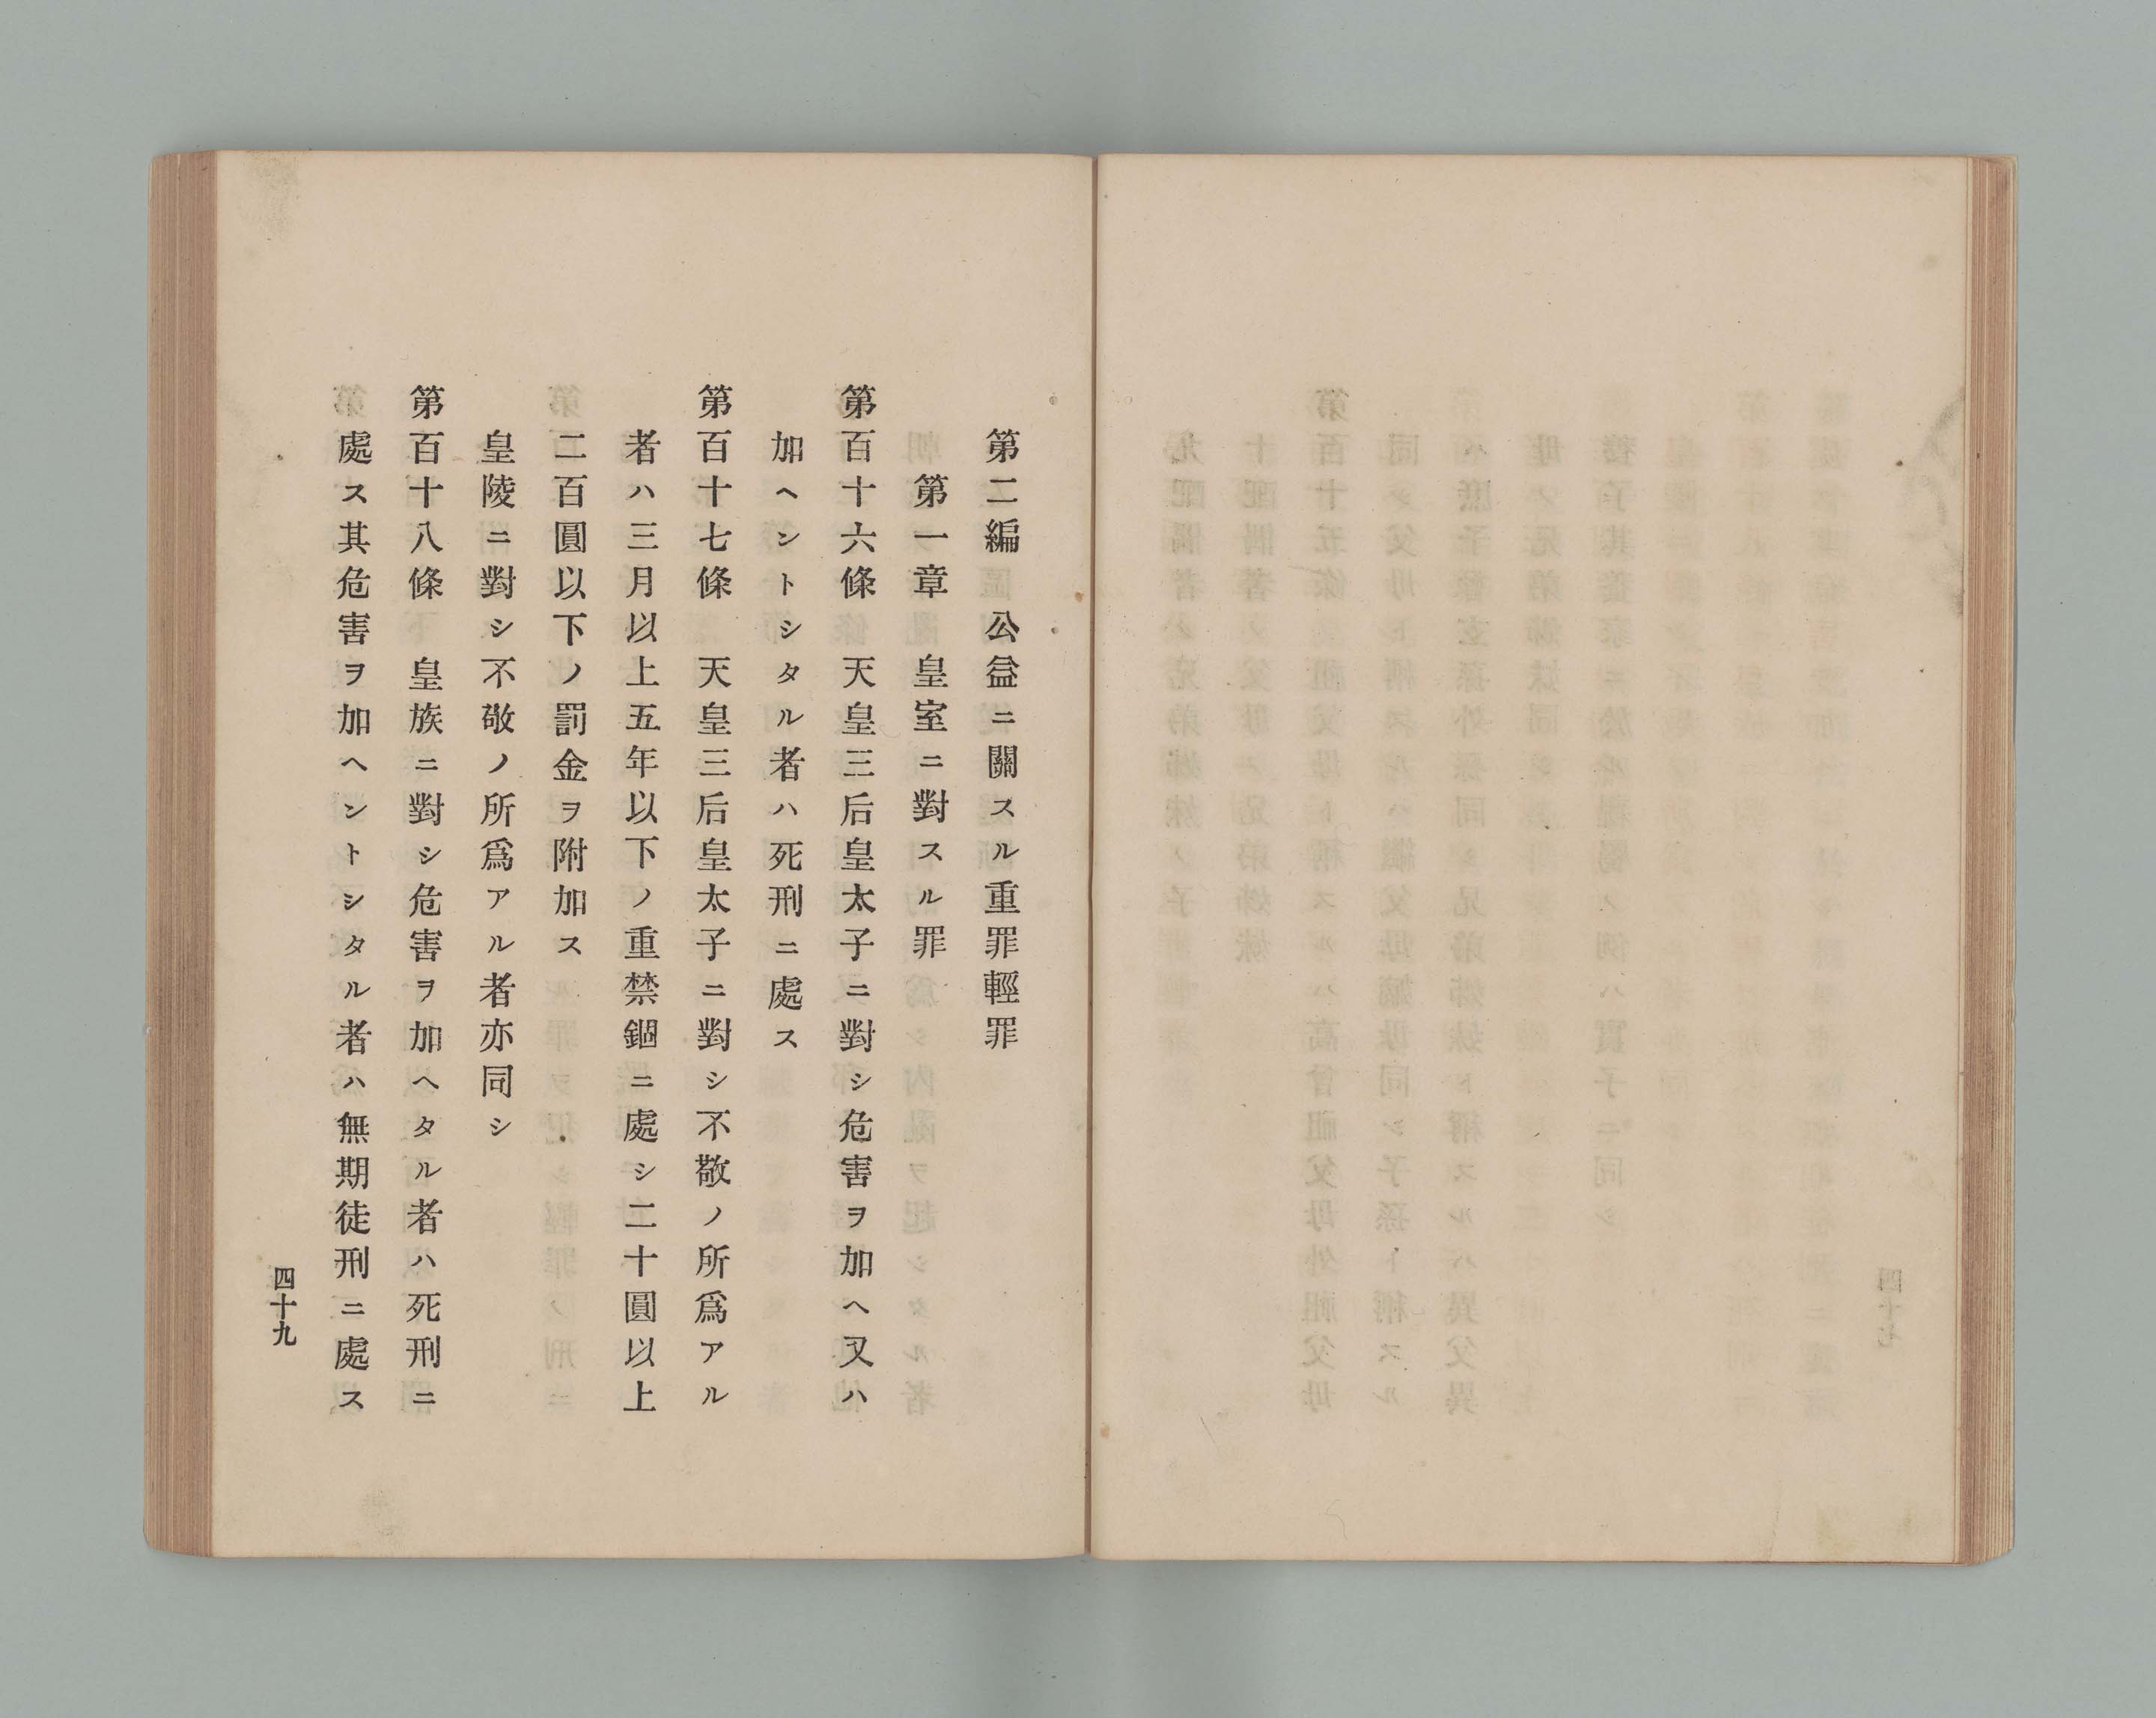 第二編　公益ニ關スル重罪輕罪
第一章　皇室ニ對スル罪
第百十六條　天皇三后皇太子ニ對シ危害ヲ加ヘ又ハ
加ヘントシタル者ハ死刑ニ處ス
第百十七條　天皇三后皇太子ニ對シ不敬ノ所爲アル
者ハ三月以上五年以下ノ重禁錮ニ處シ二十圓以上
二百圓以下ノ罰金ヲ附加ス
皇陵ニ對シ不敬ノ所爲アル者亦同シ
第百十八條　皇族ニ對シ危害ヲ加ヘタル者ハ死刑ニ
處ス其危害ヲ加ヘントシタル者ハ無期徒刑ニ處ス
四十九